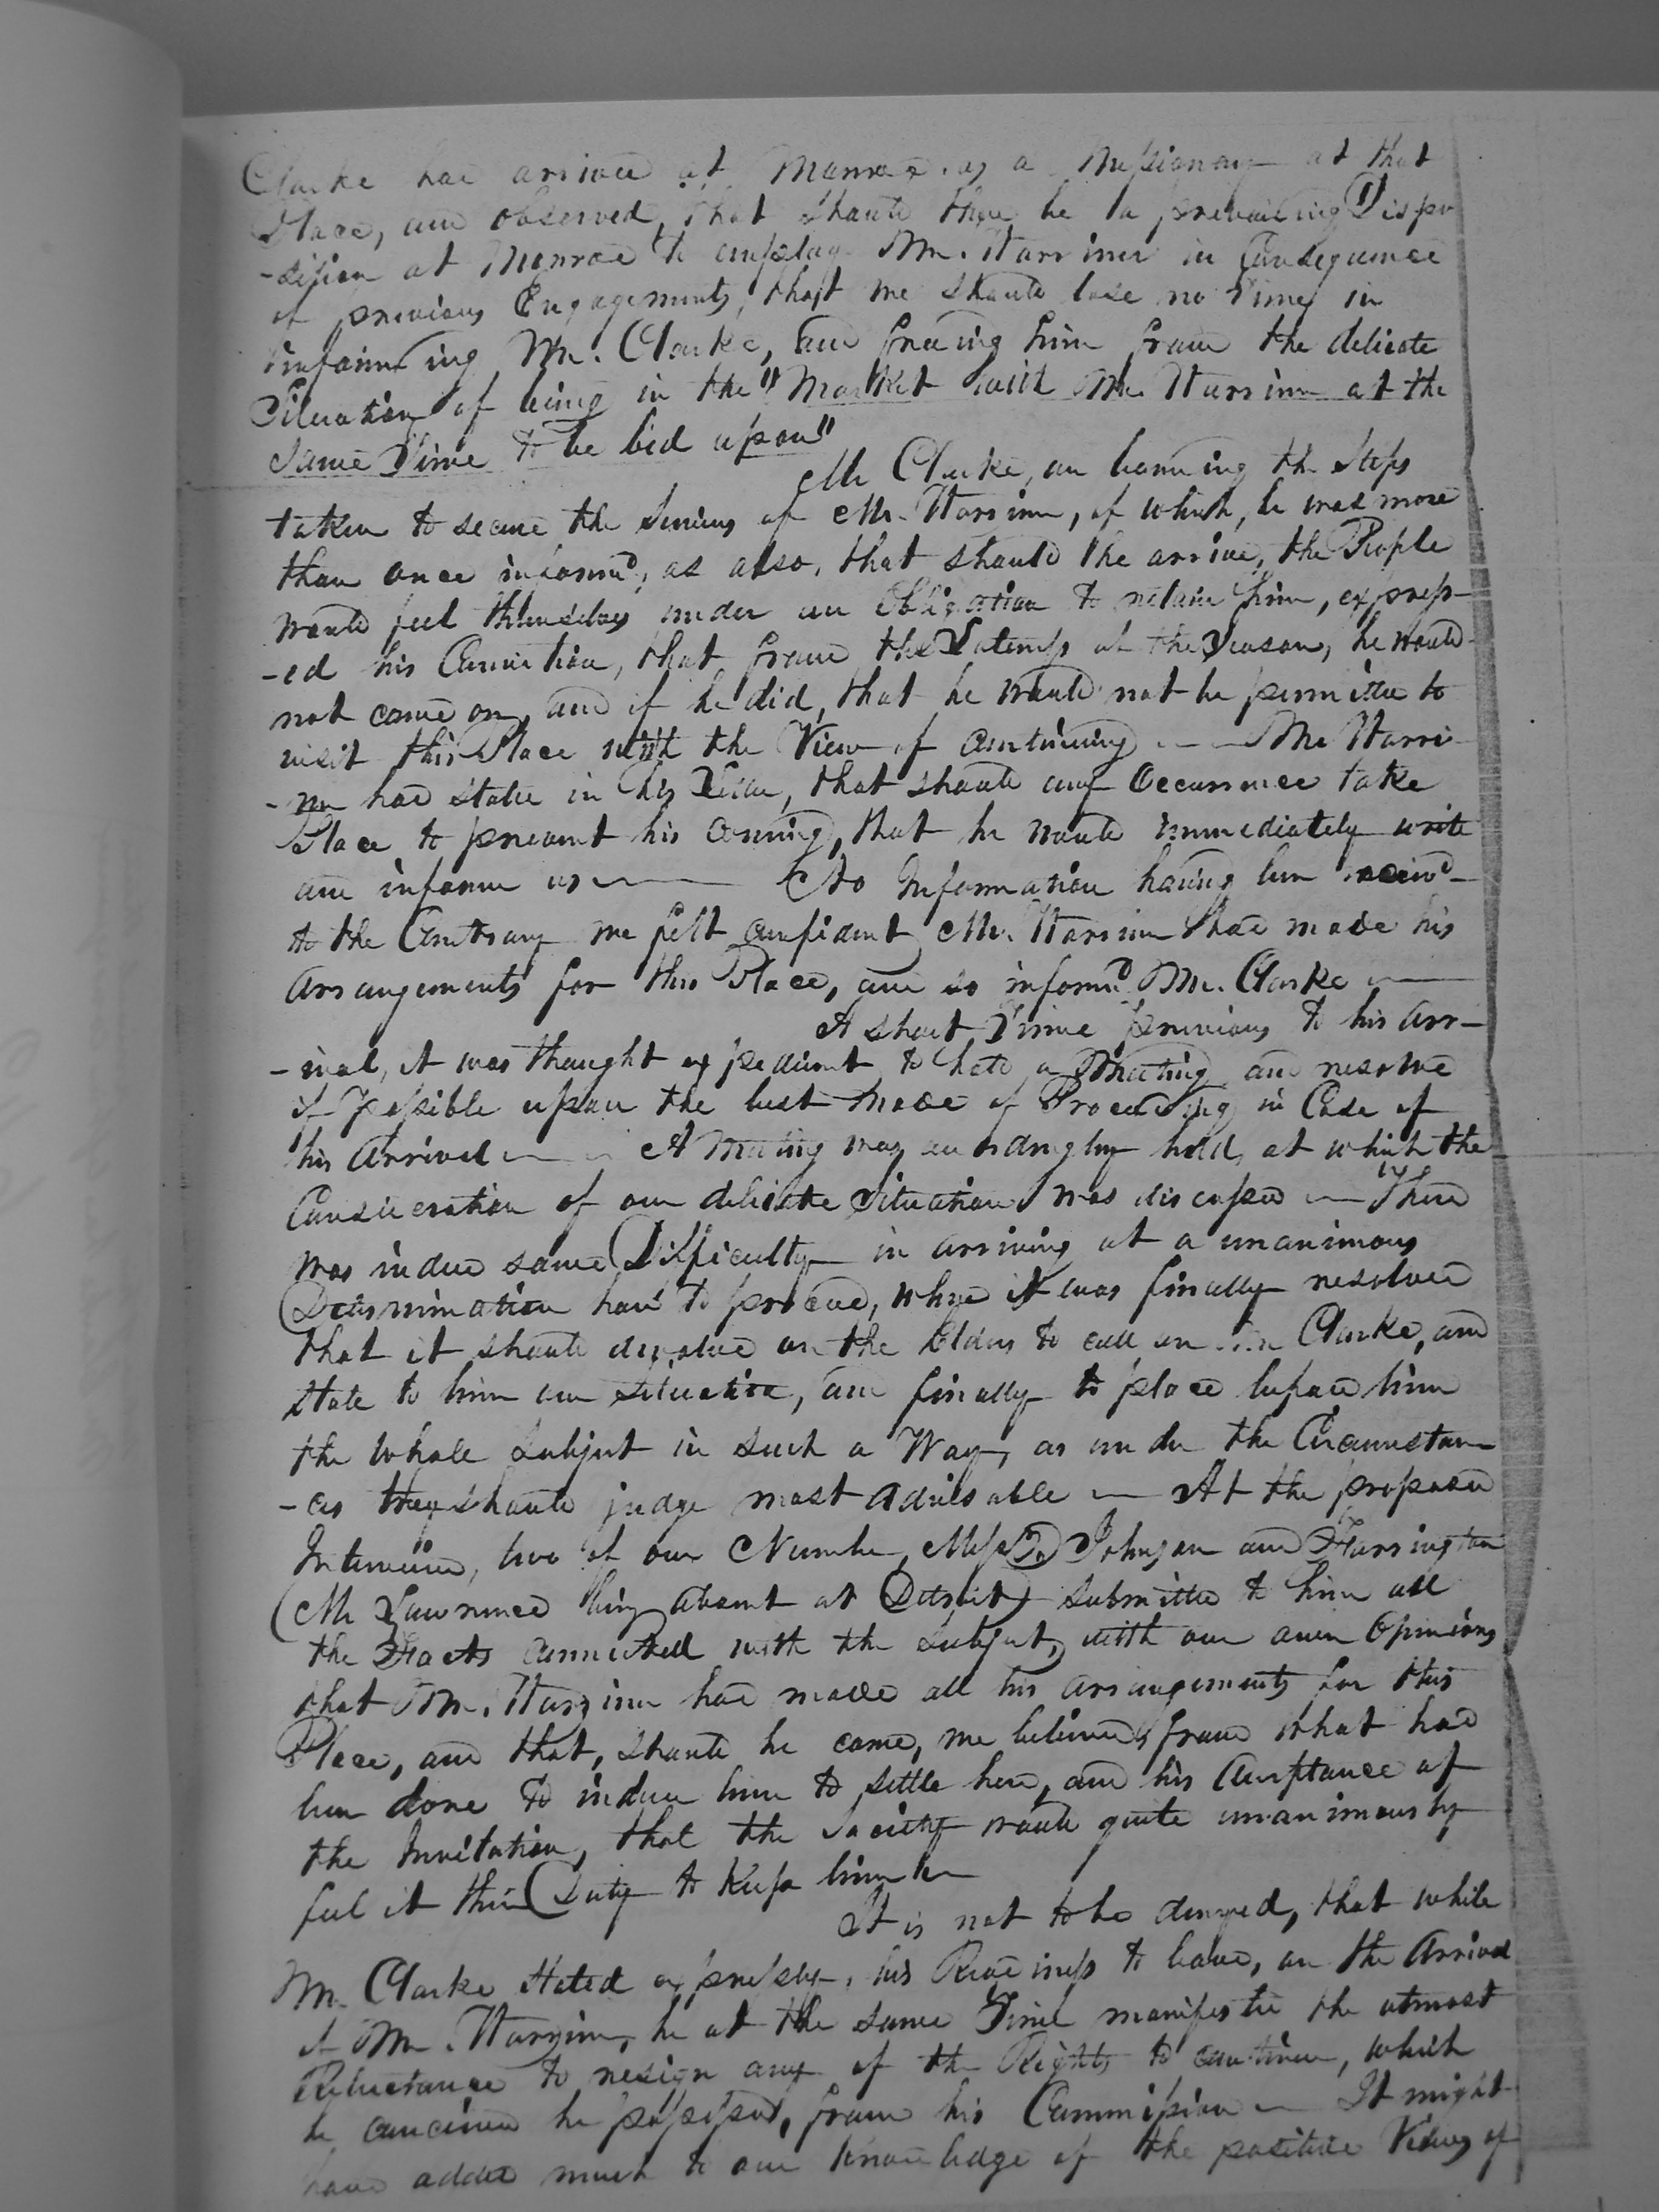 Clarke had arrived at Monroe as a Missionary at that
Place, and observed, that should there be a prevailing Dispo
-sition at Monroe to employ Mr. Warriner in Consequence
of previous Engagements, that we should lose no Time in
informing Mr. Clarke, and freeing him from the delicate
Situation of being in the "Market with Mr. Warriner at the
same Time to be bid upon"
Mr Clarke, on learning the Steps
taken to secure the Services of Mr. Warriner, of which, he was more
than once informd, as also, that should he arrive, the People
would feel themselves under an Obligation to retain him, express-
-ed his Conviction, that from the Lateness of the Season, he would
not come on, and if he did, that he would not be permitted to
visit this Place with the View of continuing — Mr Warri-
-ner had stated in his Letter, that should any Occurrence take
Place to prevent his coming, that he would immediately write
and inform us — No Information having been receivd
to the Contrary we felt confident Mr. Warriner had made his
arrangements for this Place, and so informd Mr. Clarke —
A short Time previous to his Arr-
-ival, it was thought expedient to hold a Meeting and resolve
if Possible upon the best Mode of Proceeding in Case of
his Arrival — A Meeting was accordingly held, at which the
Consideration of our delicate Situation was discussed — There
was indeed some Difficulty in arriving at a unanimous
Determination how to proceed, when it was finally resolved
that it should devolve on the Elders to call on Mr Clarke, and
state to him our situation, and finally to place before him
the whole Subject in such a Way, as under the Circumstan-
-ces they should judge most advisable — At the proposed
Interview, two of our Number, Messrs Johnson and Harrington
(Mr Lawrence being absent at Detroit) submitted to him all
the Facts connected with the Subject, with our own Opinions
that Mr. Warriner had made all his arrangements for this
Place, and that, should he come, we believed, from what had
been done to induce him to settle here, and his Acceptance of
the Invitation, that the Society would quite unanimously
feel it their Duty to keep him —
It is not to be denyed, that while
Mr. Clarke stated expressly, his Readiness to leave, on the Arrival
of Mr. Warriner, he at the same Time manifested the utmost
Reluctance to resign any of the Rights to continue, which
he conceived he possessed, from his Commission — It might
have added much to our knowledge of the positive Views of